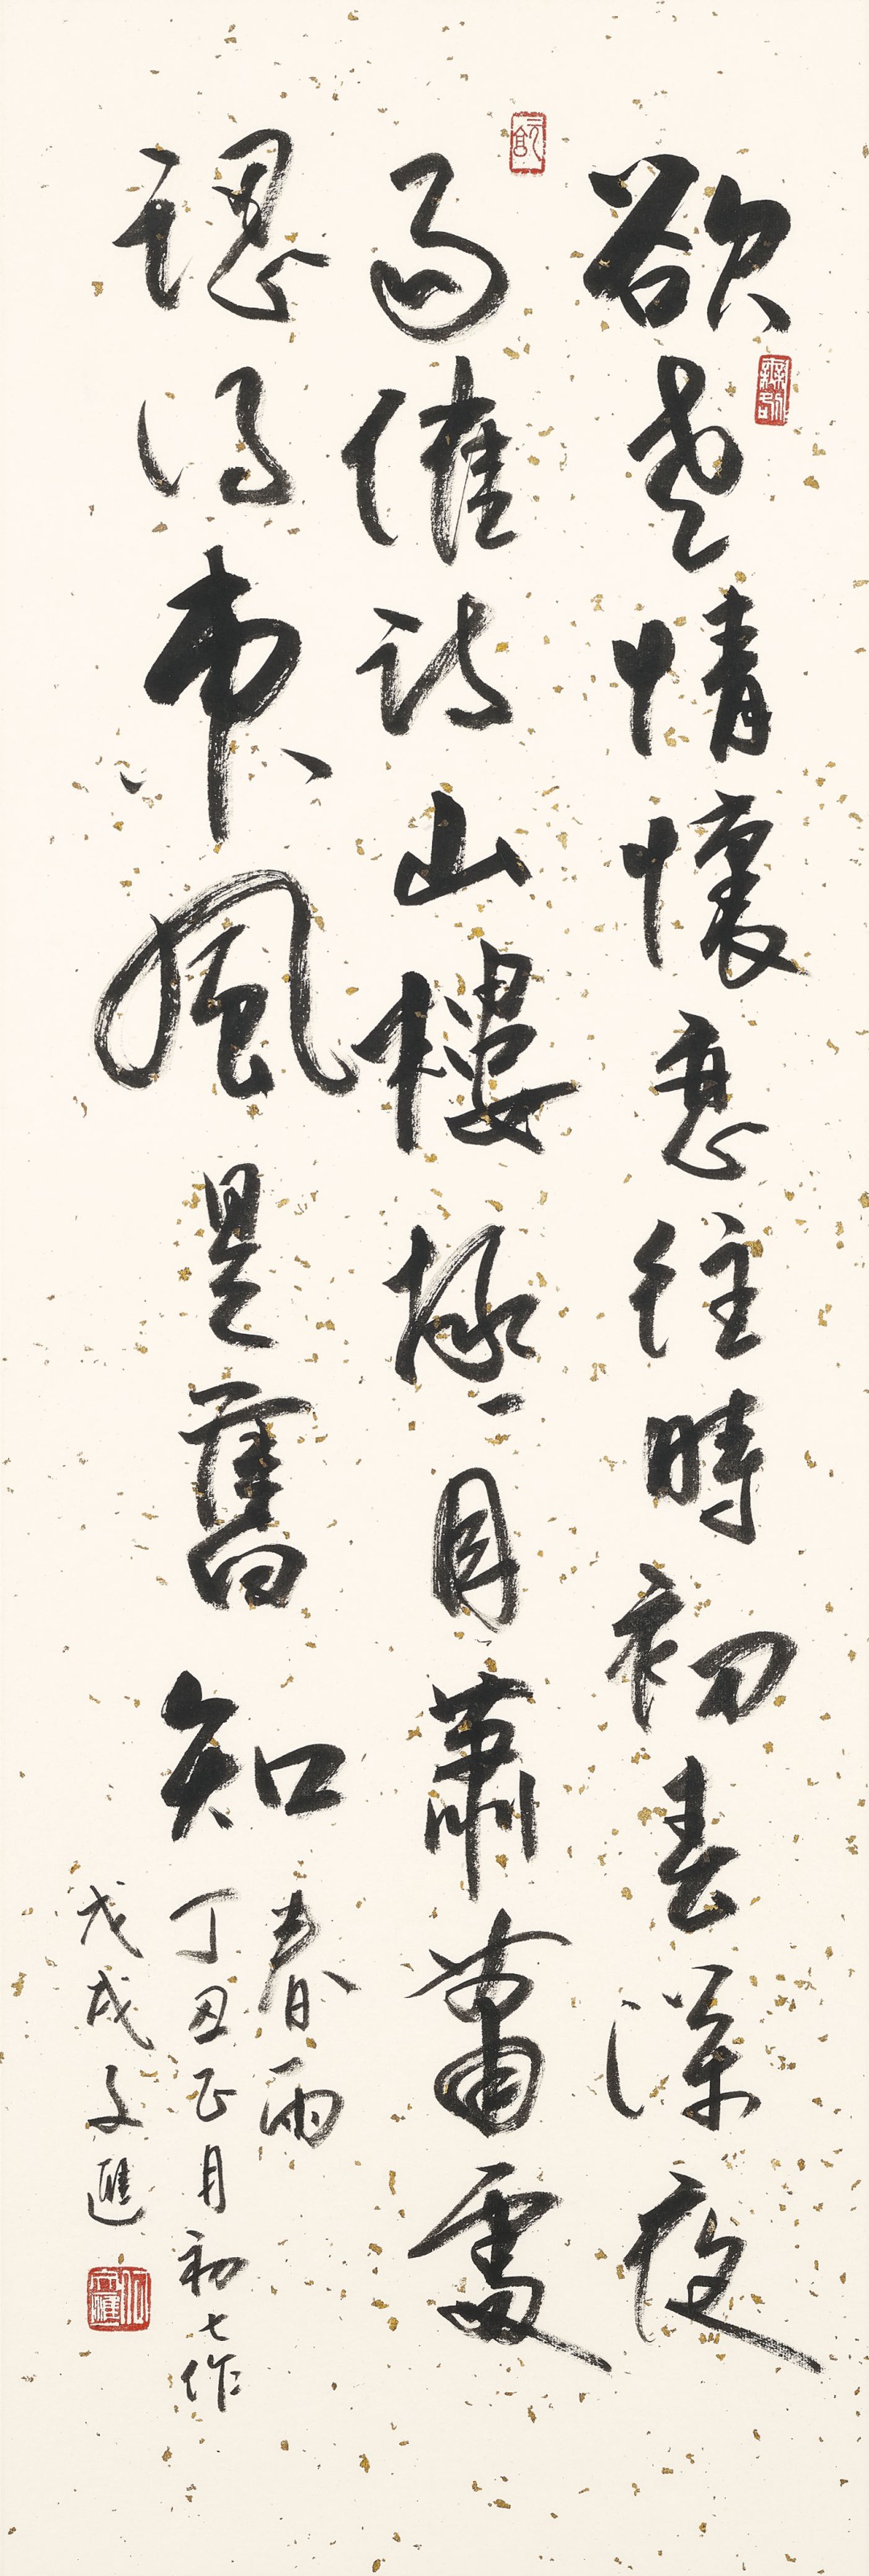 欲老情懷惡往時初春深夜
雨催詩山樓極目蕭蕭處
認得東風是舊知
春雨
丁丑正月初七作
戊戌文匯